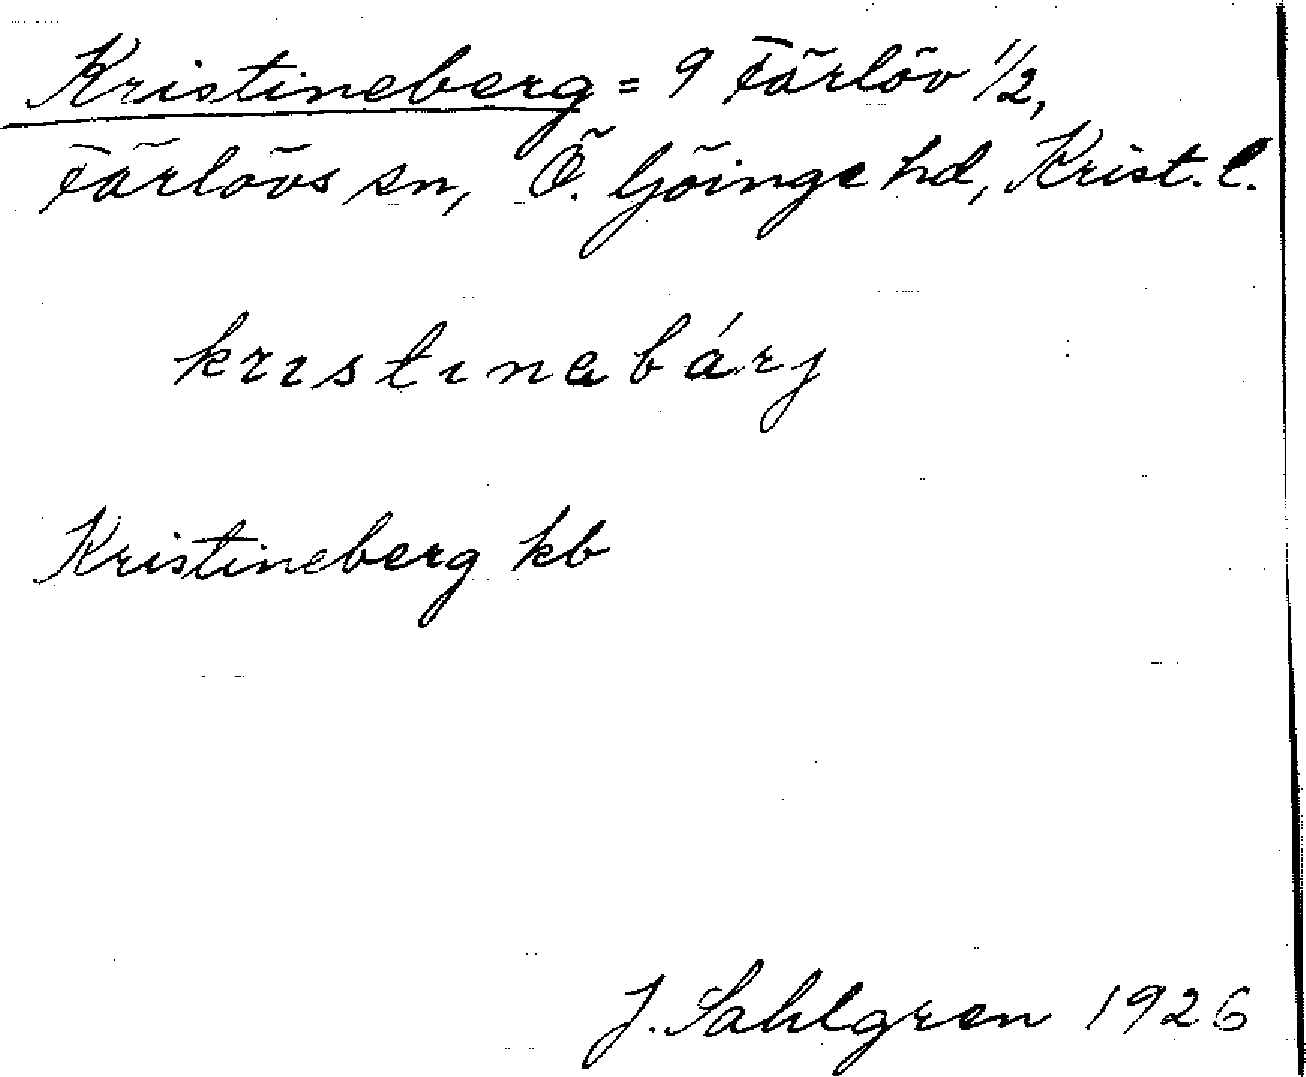 Kristineberg = 9 Färlöv 1/2,
Färlövs sn, Ö. Göinge hd, Krist. l.
krıstınabárj
Kristineberg kb
J. Sahlgren 1926